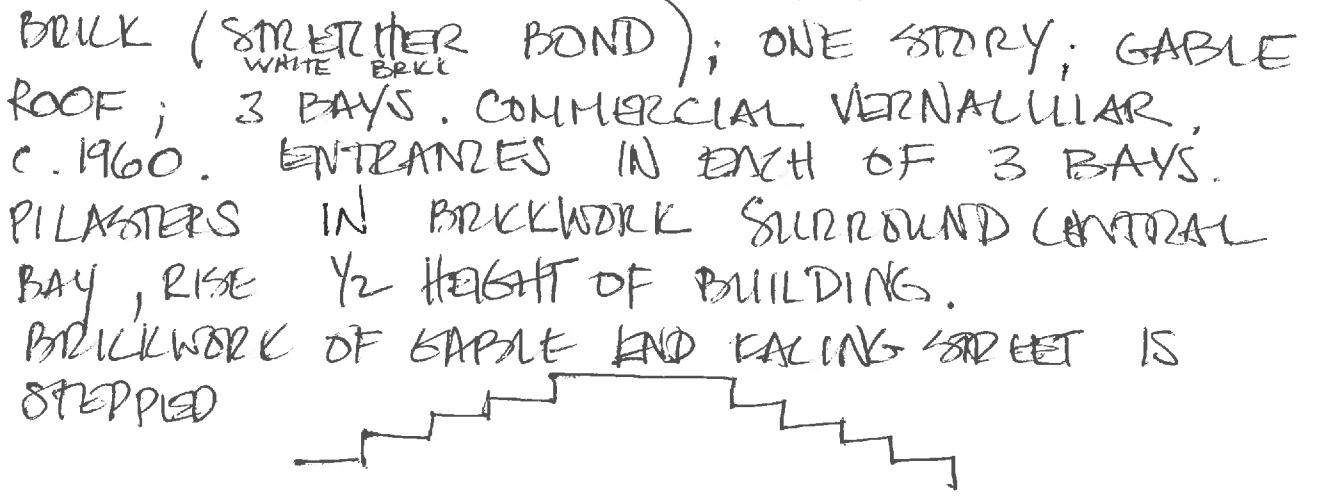 BRICK (STRETCHER BOND); ONE STORY; GABLE
WHITE BRICK
ROOF; 3 BAYS. COMMERCIAL VERNACULAR,
C. 1960. ENTRANCES IN EACH OF 3 BAYS.
PILASTERS IN BRICKWORK SURROUND CENTRAL
BAY, RISE 1/2 HEIGHT OF BUILDING.
BRICKWORK OF GABLE END FACING STREET IS
STEPPED